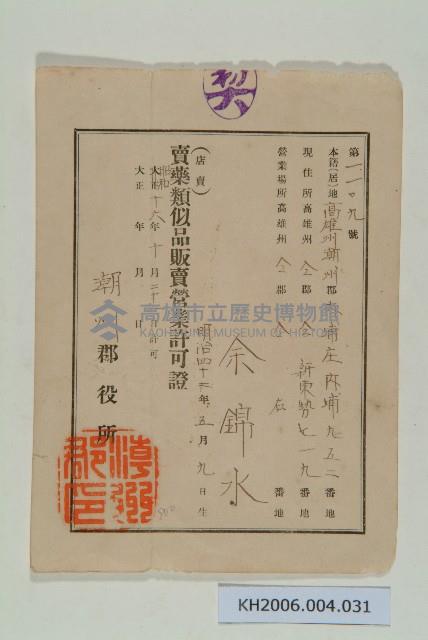 契
第一一〇九號
本籍(居)地高雄州潮州郡内埔庄内埔九五二番地
現住所高雄州仝郡仝新東勢七一九番地
營業場所高雄州仝郡仝右番地
余錦水
明治四十二年五月九日生
(店賣)
賣藥類似品販賣營業許可證
昭和大正十六年十月二十日許可
大正年月日
潮州郡役所
高雄市立歷史博物館
KAOHSIUNG MUSEUM OF HISTORY
KH2006.004.031